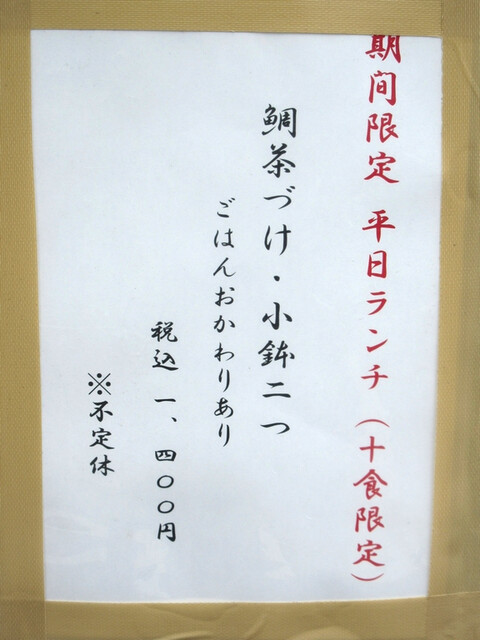 期間限定 平日ランチ (十食限定)
鯛茶づけ・小鉢二つ
ごはんおかわりあり
税込 一、四〇〇円
※不定休